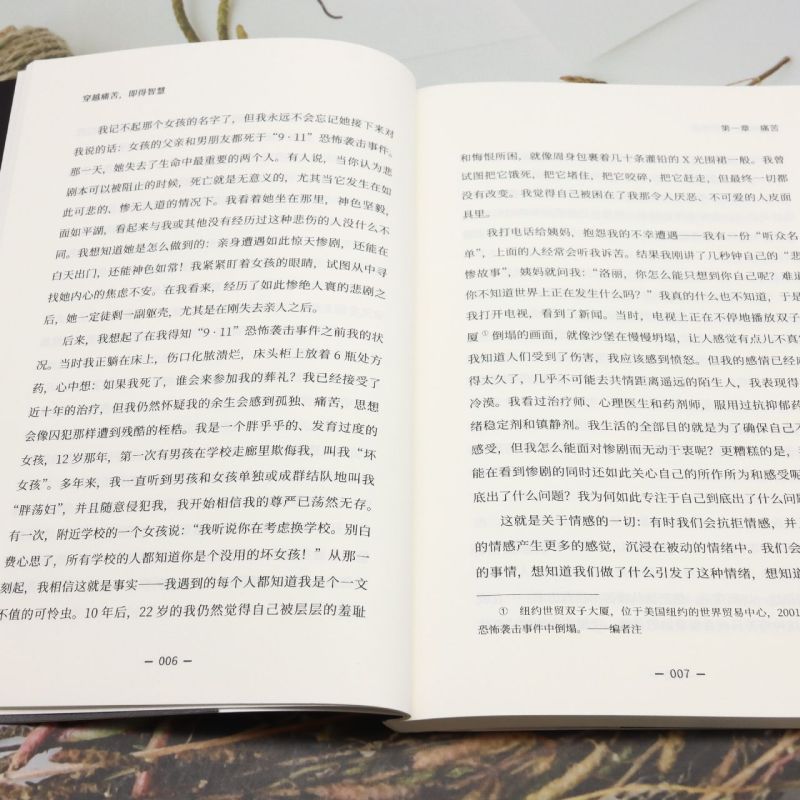 穿越痛苦，即得智慧
我记不起那个女孩的名字了，但我永远不会忘记她接下来对
我说的话：女孩的父亲和男朋友都死于“9·11”恐怖袭击事件。
那一天，她失去了生命中最重要的两个人。有人说，当你认为悲
剧本可以被阻止的时候，死亡就是无意义的，尤其当它发生在如
此可悲的、惨无人道的情况下。我看着她坐在那里，神色坚毅，
面如平湖，看起来与我或其他没有经历过这种悲伤的人没什么不
同。我想知道她是怎么做到的：亲身遭遇如此惊天惨剧，还能在
白天出门，还能神色如常！我紧紧盯着女孩的眼睛，试图从中寻
找她内心的焦虑不安。在我看来，经历了如此惨绝人寰的悲剧之
后，她一定徒剩一副躯壳，尤其是在刚失去亲人之后。
后来，我想起了在我得知“9·11”恐怖袭击事件之前我的状
况。当时我正躺在床上，伤口化脓溃烂，床头柜上放着 6 瓶处方
药，心中想：如果我死了，谁会来参加我的葬礼？我已经接受了
近十年的治疗，但我仍然怀疑我的余生会感到孤独、痛苦，思想
会像囚犯那样遭到残酷的桎梏。我是一个胖乎乎的、发育过度的
女孩，12 岁那年，第一次有男孩在学校走廊里欺侮我，叫我“坏
女孩”。多年来，我一直听到男孩和女孩单独或成群结队地叫我
“胖荡妇”，并且随意侵犯我，我开始相信我的尊严已荡然无存。
有一次，附近学校的一个女孩说：“我听说你在考虑换学校。别白
费心思了，所有学校的人都知道你是个没用的坏女孩！”从那一
刻起，我相信这就是事实——我遇到的每个人都知道我是个一文
不值的可怜虫。10 年后，22 岁的我仍然觉得自己被层层的羞耻
— 006 —
第一章 痛苦
和悔恨所困，就像周身包裹着几十条灌铅的 X 光围裙一般。我曾
试图把它饿死，把它堵住，把它咬碎，把它赶走，但最终一切都
没有改变。我觉得自己被困在了我那令人厌恶、不可爱的人皮面
具里。
我打电话给姨妈，抱怨我的不幸遭遇——我有一份“听众名
单”，上面的人经常会听我诉苦。结果我刚讲了几秒钟自己的“悲
惨故事”，姨妈就问我：“洛丽，你怎么能只想到你自己呢？难道
你不知道世界上正在发生什么吗？”我真的什么也不知道，于是
我打开电视，看到了新闻。当时，电视上正在不停地播放双子
厦①倒塌的画面，就像沙堡在慢慢坍塌，让人感觉有点儿不真
我知道人们受到了伤害，我应该感到愤怒。但我的感情已经麻
得太久了，几乎不可能去共情距离遥远的陌生人，我表现得
冷漠。我看过治疗师、心理医生和药剂师，服用过抗抑郁药
绪稳定剂和镇静剂。我生活的全部目的就是为了确保自己不
感受，但我怎么能面对惨剧而无动于衷呢？更糟糕的是，我
能在看到惨剧的同时还如此关心自己的所作所为和感受呢
底出了什么问题？我为何如此专注于自己到底出了什么问题
这就是关于情感的一切：有时我们会抗拒情感，并
的情感产生更多的感觉，沉浸在被动的情绪中。我们会
的事情，想知道我们做了什么引发了这种情绪，想知道
① 纽约世贸双子大厦，位于美国纽约的世界贸易中心，2001
恐怖袭击事件中倒塌。——编者注
— 007 —